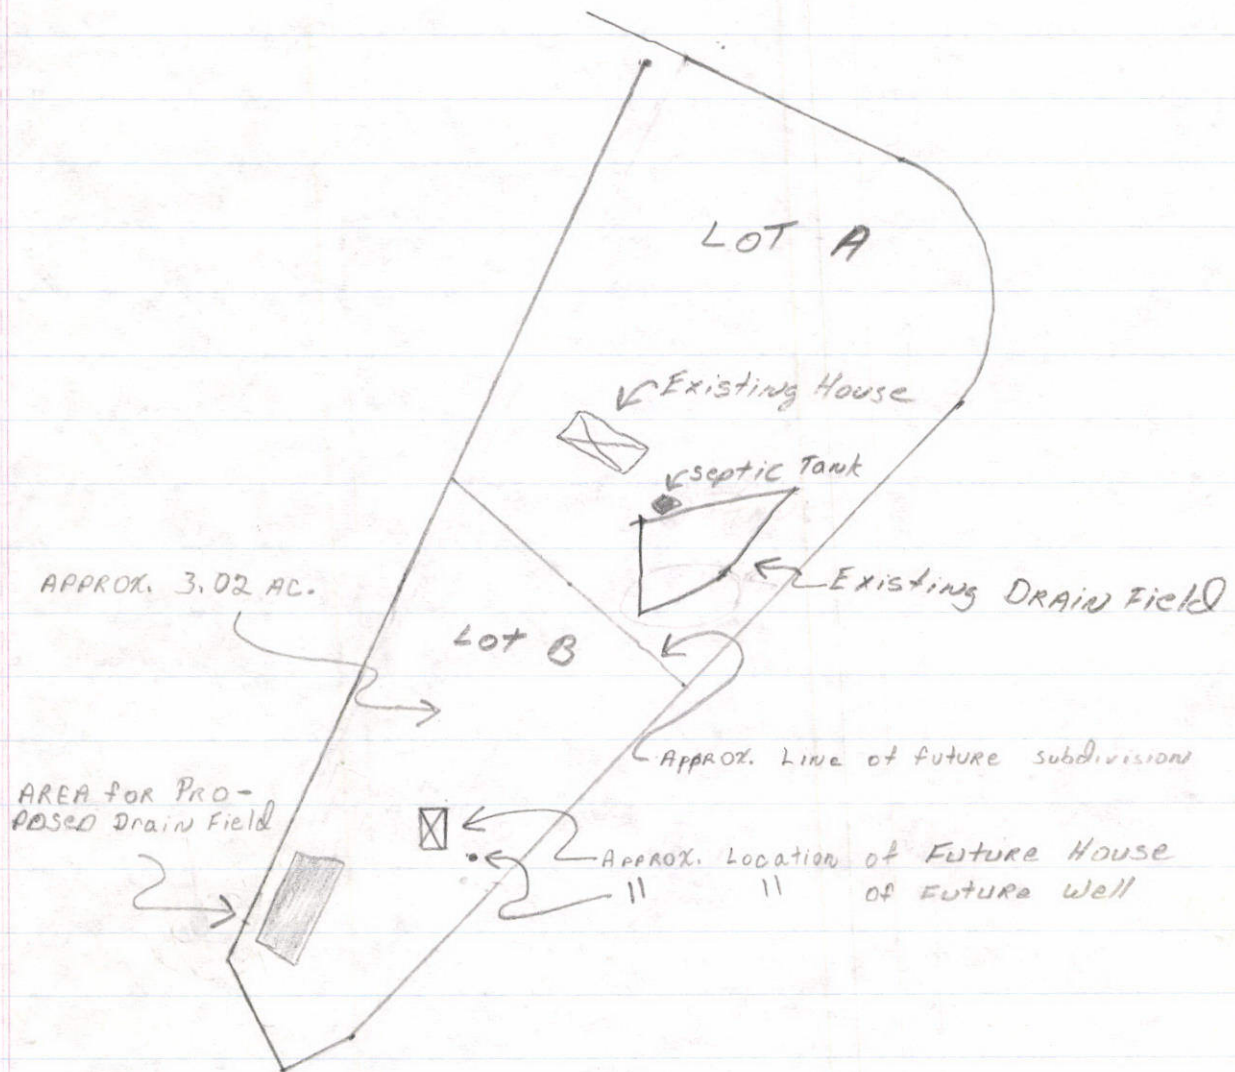 LOT A
Existing House
Septic Tank
Existing DRAIN Field
APPROX. 3.02 AC.
Lot B
APPROX. Line of future subdivision
AREA for PRO-
POSED Drain Field
APPROX. Location of Future House
" " of Future Well